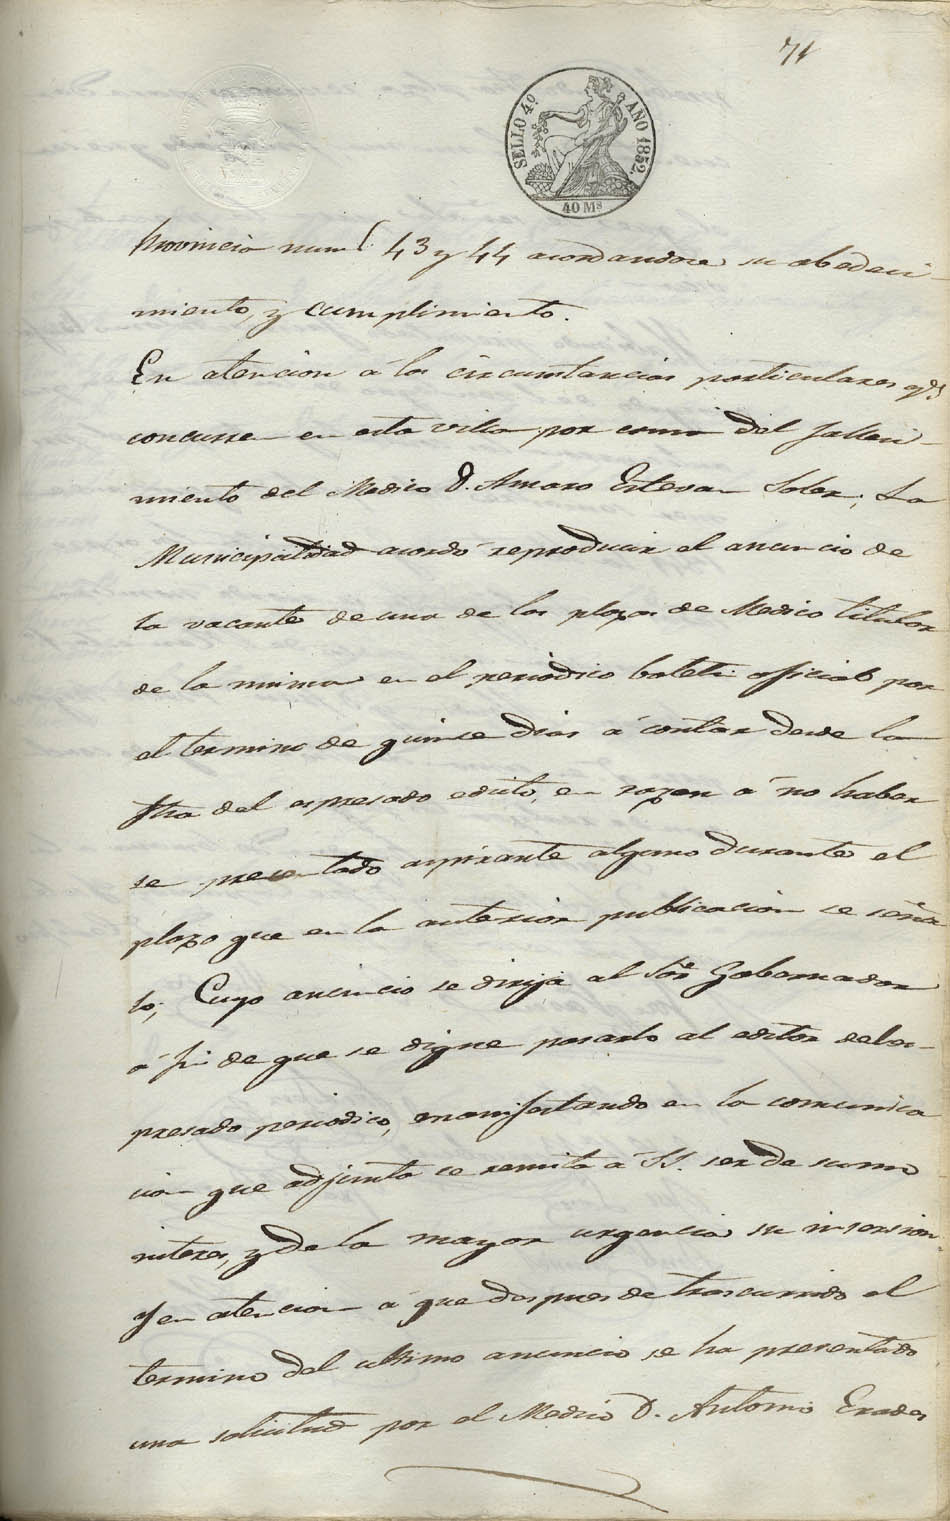 71
SELLO 4º AÑO 1852.
40 Ms
Provincia num.s 43 y 44 acordandose su obedeci-
miento, y cumplimiento.
En atencion á las circunstancias particulares q.e
concurren en esta villa por causa del falleci-
miento del Medico D. Amaro Estevan Soler, La
Municipalidad acordó reproducir el anuncio de
la vacante de una de las plazas de Medico titular
de la misma en el periódico boletin oficial por
el termino de quinse dias á contar desde la
fha del espresado edicto, en razon á no haber
se presentado aspirante alguno durante el
plazo que en la anterior publicacion se seña
ló; Cuyo anuncio se dirija al Sõr Gobernador
á fin de que se digne pasarlo al editor del es-
presado periodico, manifestando en la comunica
cion que adjunta se remita á SS. ser de sumo
interes, y de la mayor urgencia su insersion.
Y en atencion á que despues de trascurrido el
termino del ultimo anuncio se ha presentado
una solicitud por el Medico D. Antonio Erades